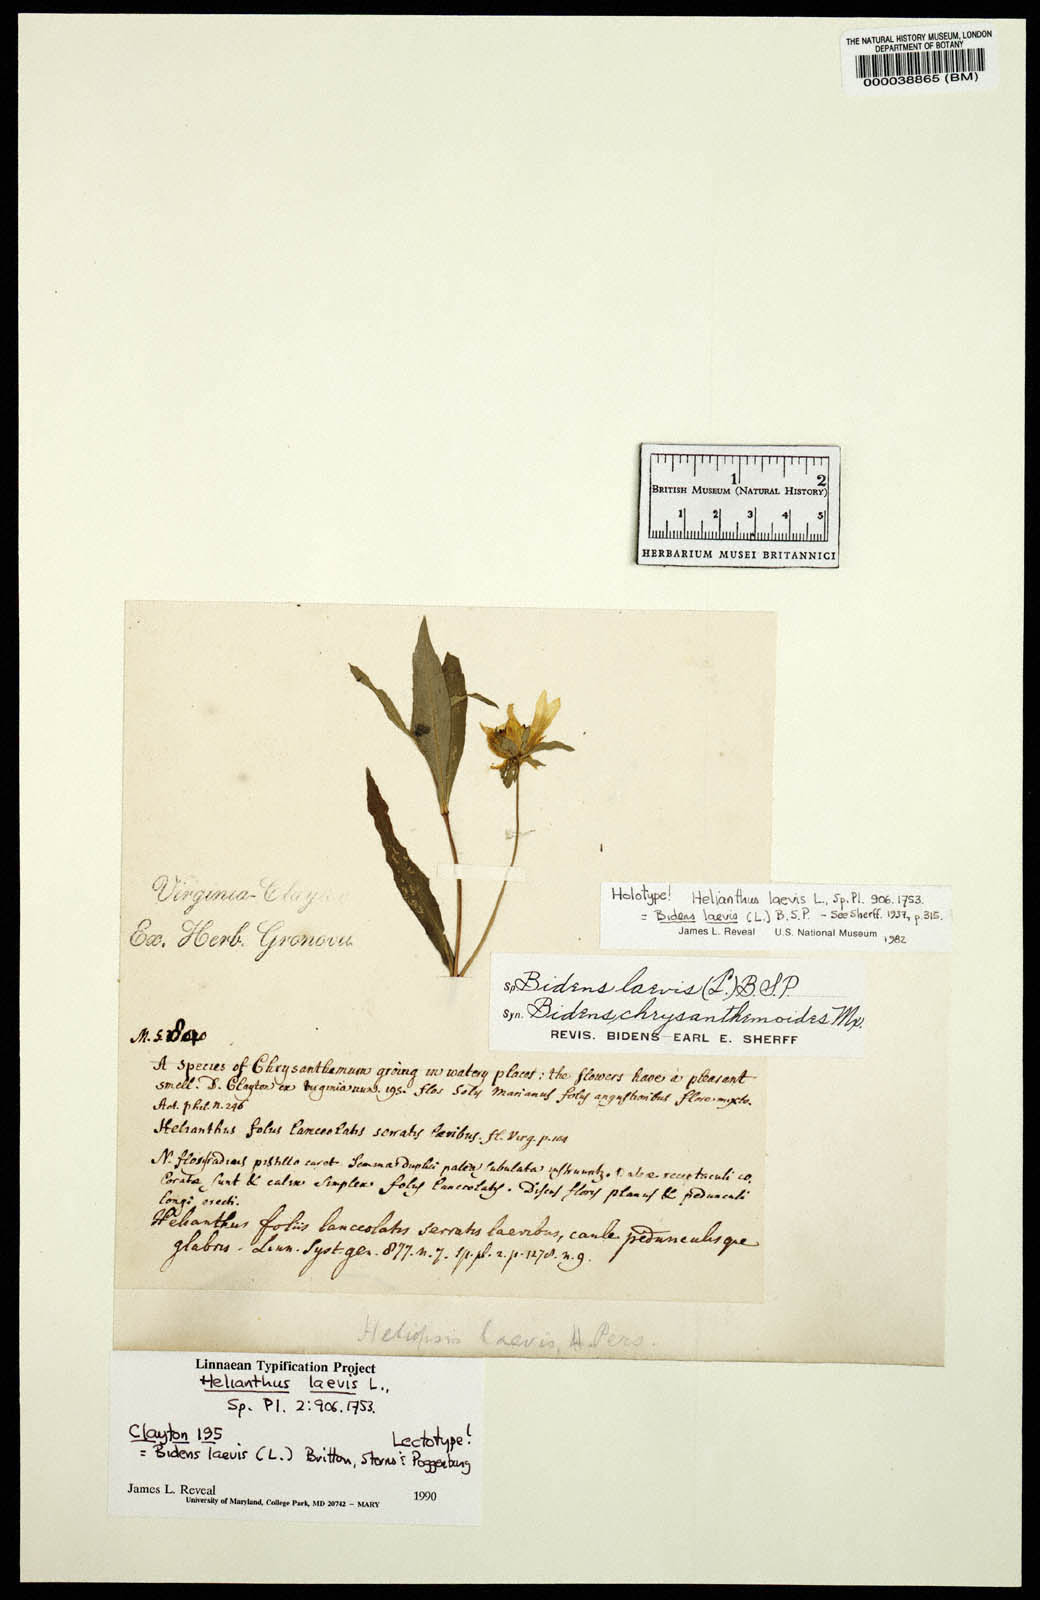 THE NATURAL HISTORY MUSEUM, LONDON
DEPARTMENT OF BOTANY
000038865 (BM)
1 2
BRITISH MUSEUM (NATURAL HISTORY)
1 2 3 4 5
HERBARIUM MUSEI BRITANNICI
Virginia-Clayton
Ex. Herb. Gronovii
Holotype! Helianthus laevis L., Sp. Pl. 906. 1753.
= Bidens laevis (L.) B.S.P. - See Sherff. 1937, p. 315.
James L. Reveal U.S. National Museum 1982
Sp. Bidens laevis (L.) B.S.P.
Syn. Bidens chrysanthemoides Mx.
REVIS. BIDENS—EARL E. SHERFF
A species of Chrysanthemum groing in watery places: the flowers have a pleasant
smell. D. Clayton ex Virginia num. 195. flos Solis Marianus foliis angustioribus flore mixto.
Act. phil. n. 246
Helianthus foliis lanceolatis serratis laevibus. fl. Virg. p. 104
N. flos radius pistillo caret. Semina duplici palea subulata
sunt & calix simplex foliis lanceolatis. Discus floris planus & pedunculi
longi erecti.
Helianthus foliis lanceolatis serratis laevibus, caule pedunculisque
glabris. Linn. Syst. gen. 877. n. 7. sp. pl. 2. p. 1278. n. 9.
Heliopsis laevis, Pers.
Linnaean Typification Project
Helianthus laevis L.,
Sp. Pl. 2: 906. 1753.
Clayton 195 Lectotype!
= Bidens laevis (L.) Britton, Sterns & Poggenburg
James L. Reveal 1990
University of Maryland, College Park, MD 20742 – MARY